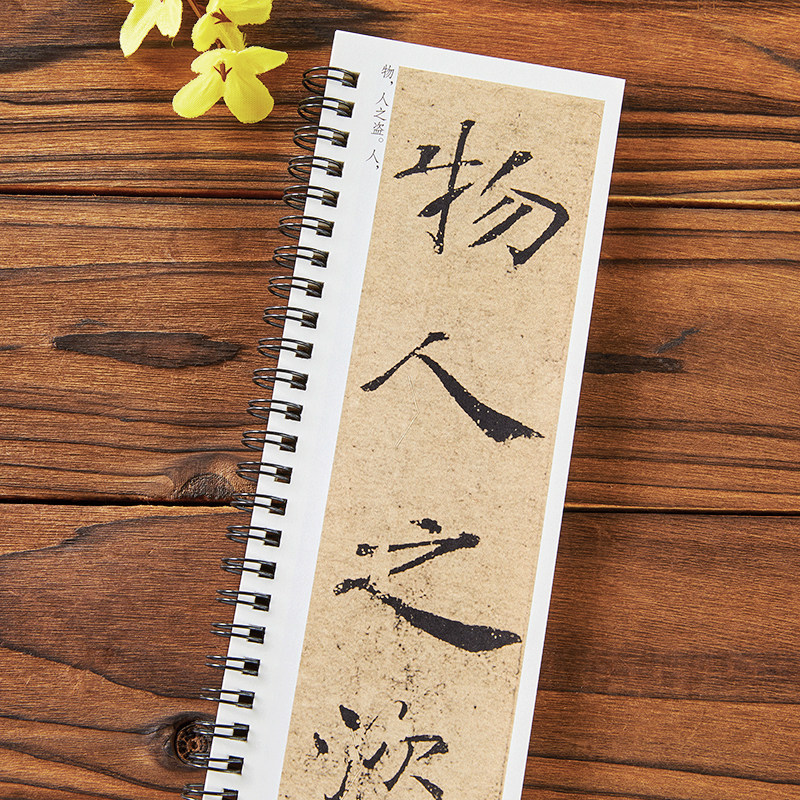 物，人之盗。人，
物人之盗